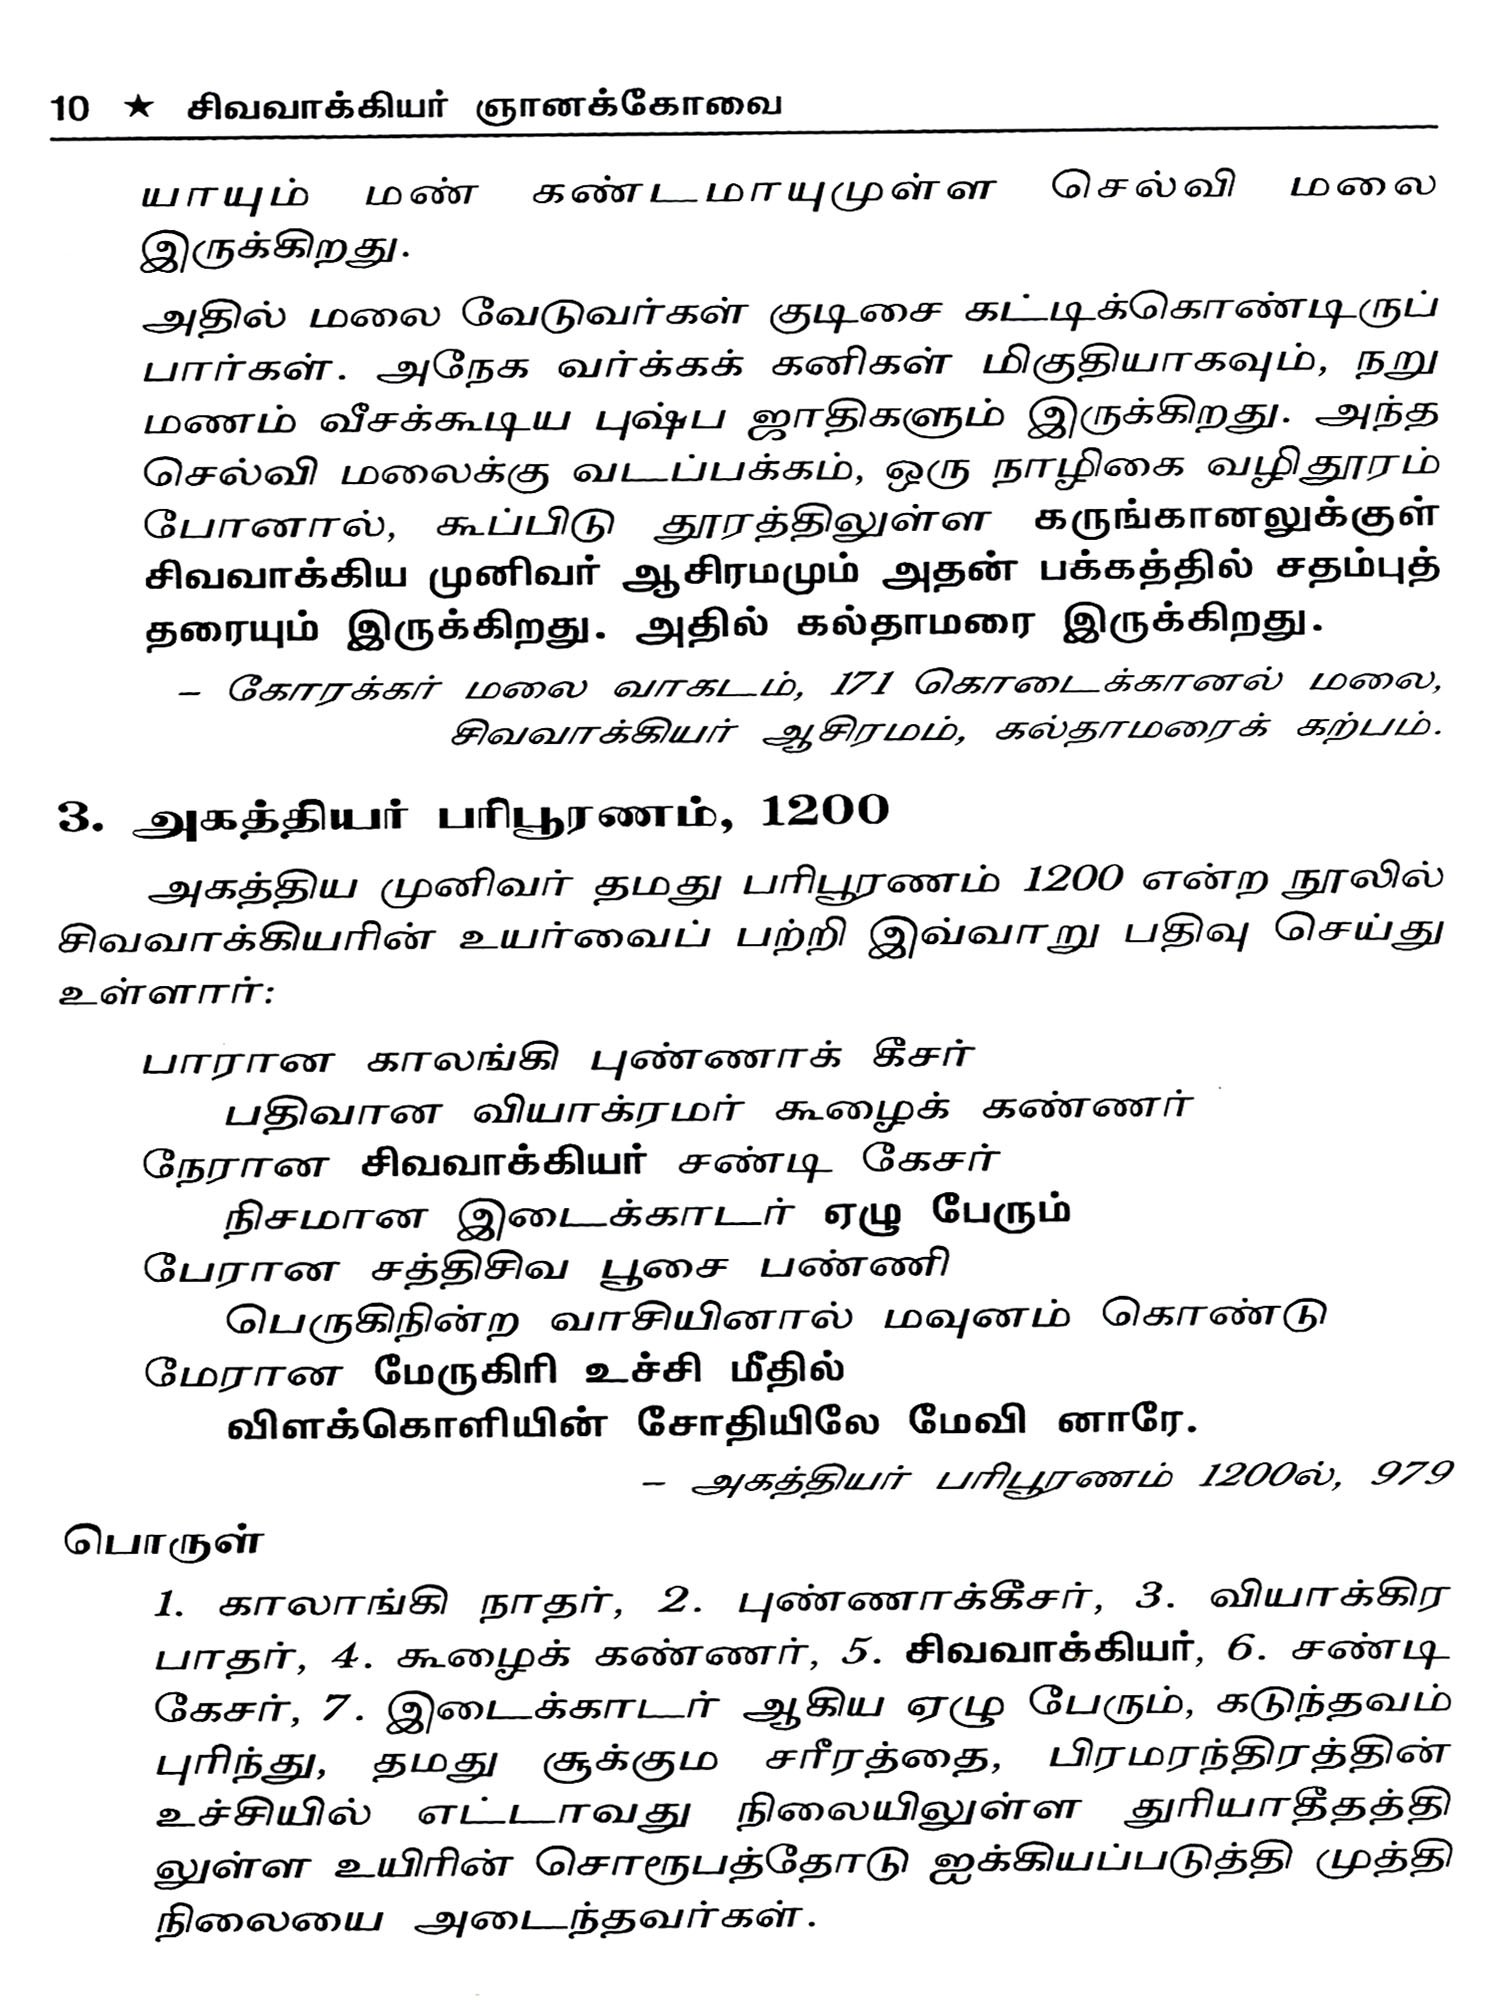 10 ★ சிவவாக்கியர் ஞானக்கோவை
யாயும் மண் கண்டமாயுமுள்ள செல்வி மலை
இருக்கிறது.
அதில் மலை வேடுவர்கள் குடிசை கட்டிக்கொண்டிருப்
பார்கள். அநேக வர்க்கக் கனிகள் மிகுதியாகவும், நறு
மணம் வீசக்கூடிய புஷ்ப ஜாதிகளும் இருக்கிறது. அந்த
செல்வி மலைக்கு வடப்பக்கம், ஒரு நாழிகை வழிதூரம்
போனால், கூப்பிடு தூரத்திலுள்ள கருங்கானலுக்குள்
சிவவாக்கிய முனிவர் ஆசிரமமும் அதன் பக்கத்தில் சதம்புத்
தரையும் இருக்கிறது. அதில் கல்தாமரை இருக்கிறது.
– கோரக்கர் மலை வாகடம், 171 கொடைக்கானல் மலை,
சிவவாக்கியர் ஆசிரமம், கல்தாமரைக் கற்பம்.
3. அகத்தியர் பரிபூரணம், 1200
அகத்திய முனிவர் தமது பரிபூரணம் 1200 என்ற நூலில்
சிவவாக்கியரின் உயர்வைப் பற்றி இவ்வாறு பதிவு செய்து
உள்ளார்:
பாரான காலங்கி புண்ணாக் கீசர்
பதிவான வியாக்ரமர் கூழைக் கண்ணர்
நேரான சிவவாக்கியர் சண்டி கேசர்
நிசமான இடைக்காடர் ஏழு பேரும்
பேரான சத்திசிவ பூசை பண்ணி
பெருகிநின்ற வாசியினால் மவுனம் கொண்டு
மேரான மேருகிரி உச்சி மீதில்
விளக்கொளியின் சோதியிலே மேவி னாரே.
– அகத்தியர் பரிபூரணம் 1200ல், 979
பொருள்
1. காலாங்கி நாதர், 2. புண்ணாக்கீசர், 3. வியாக்கிர
பாதர், 4. கூழைக் கண்ணர், 5. சிவவாக்கியர், 6. சண்டி
கேசர், 7. இடைக்காடர் ஆகிய ஏழு பேரும், கடுந்தவம்
புரிந்து, தமது சூக்கும சரீரத்தை, பிரமரந்திரத்தின்
உச்சியில் எட்டாவது நிலையிலுள்ள துரியாதீதத்தி
லுள்ள உயிரின் சொரூபத்தோடு ஐக்கியப்படுத்தி முத்தி
நிலையை அடைந்தவர்கள்.